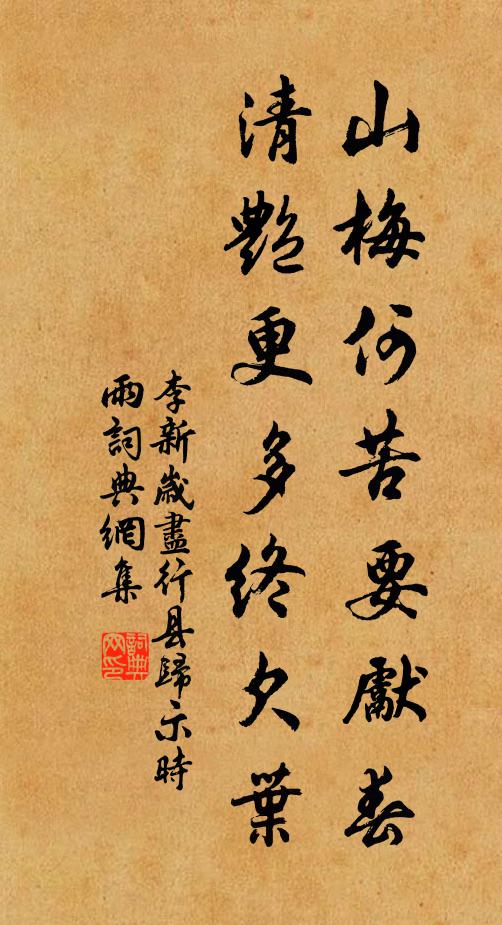 山梅何苦要獻春
清艷更多終欠葉
李新歲盡行县歸示時
雨詞典網集
詞典
网印